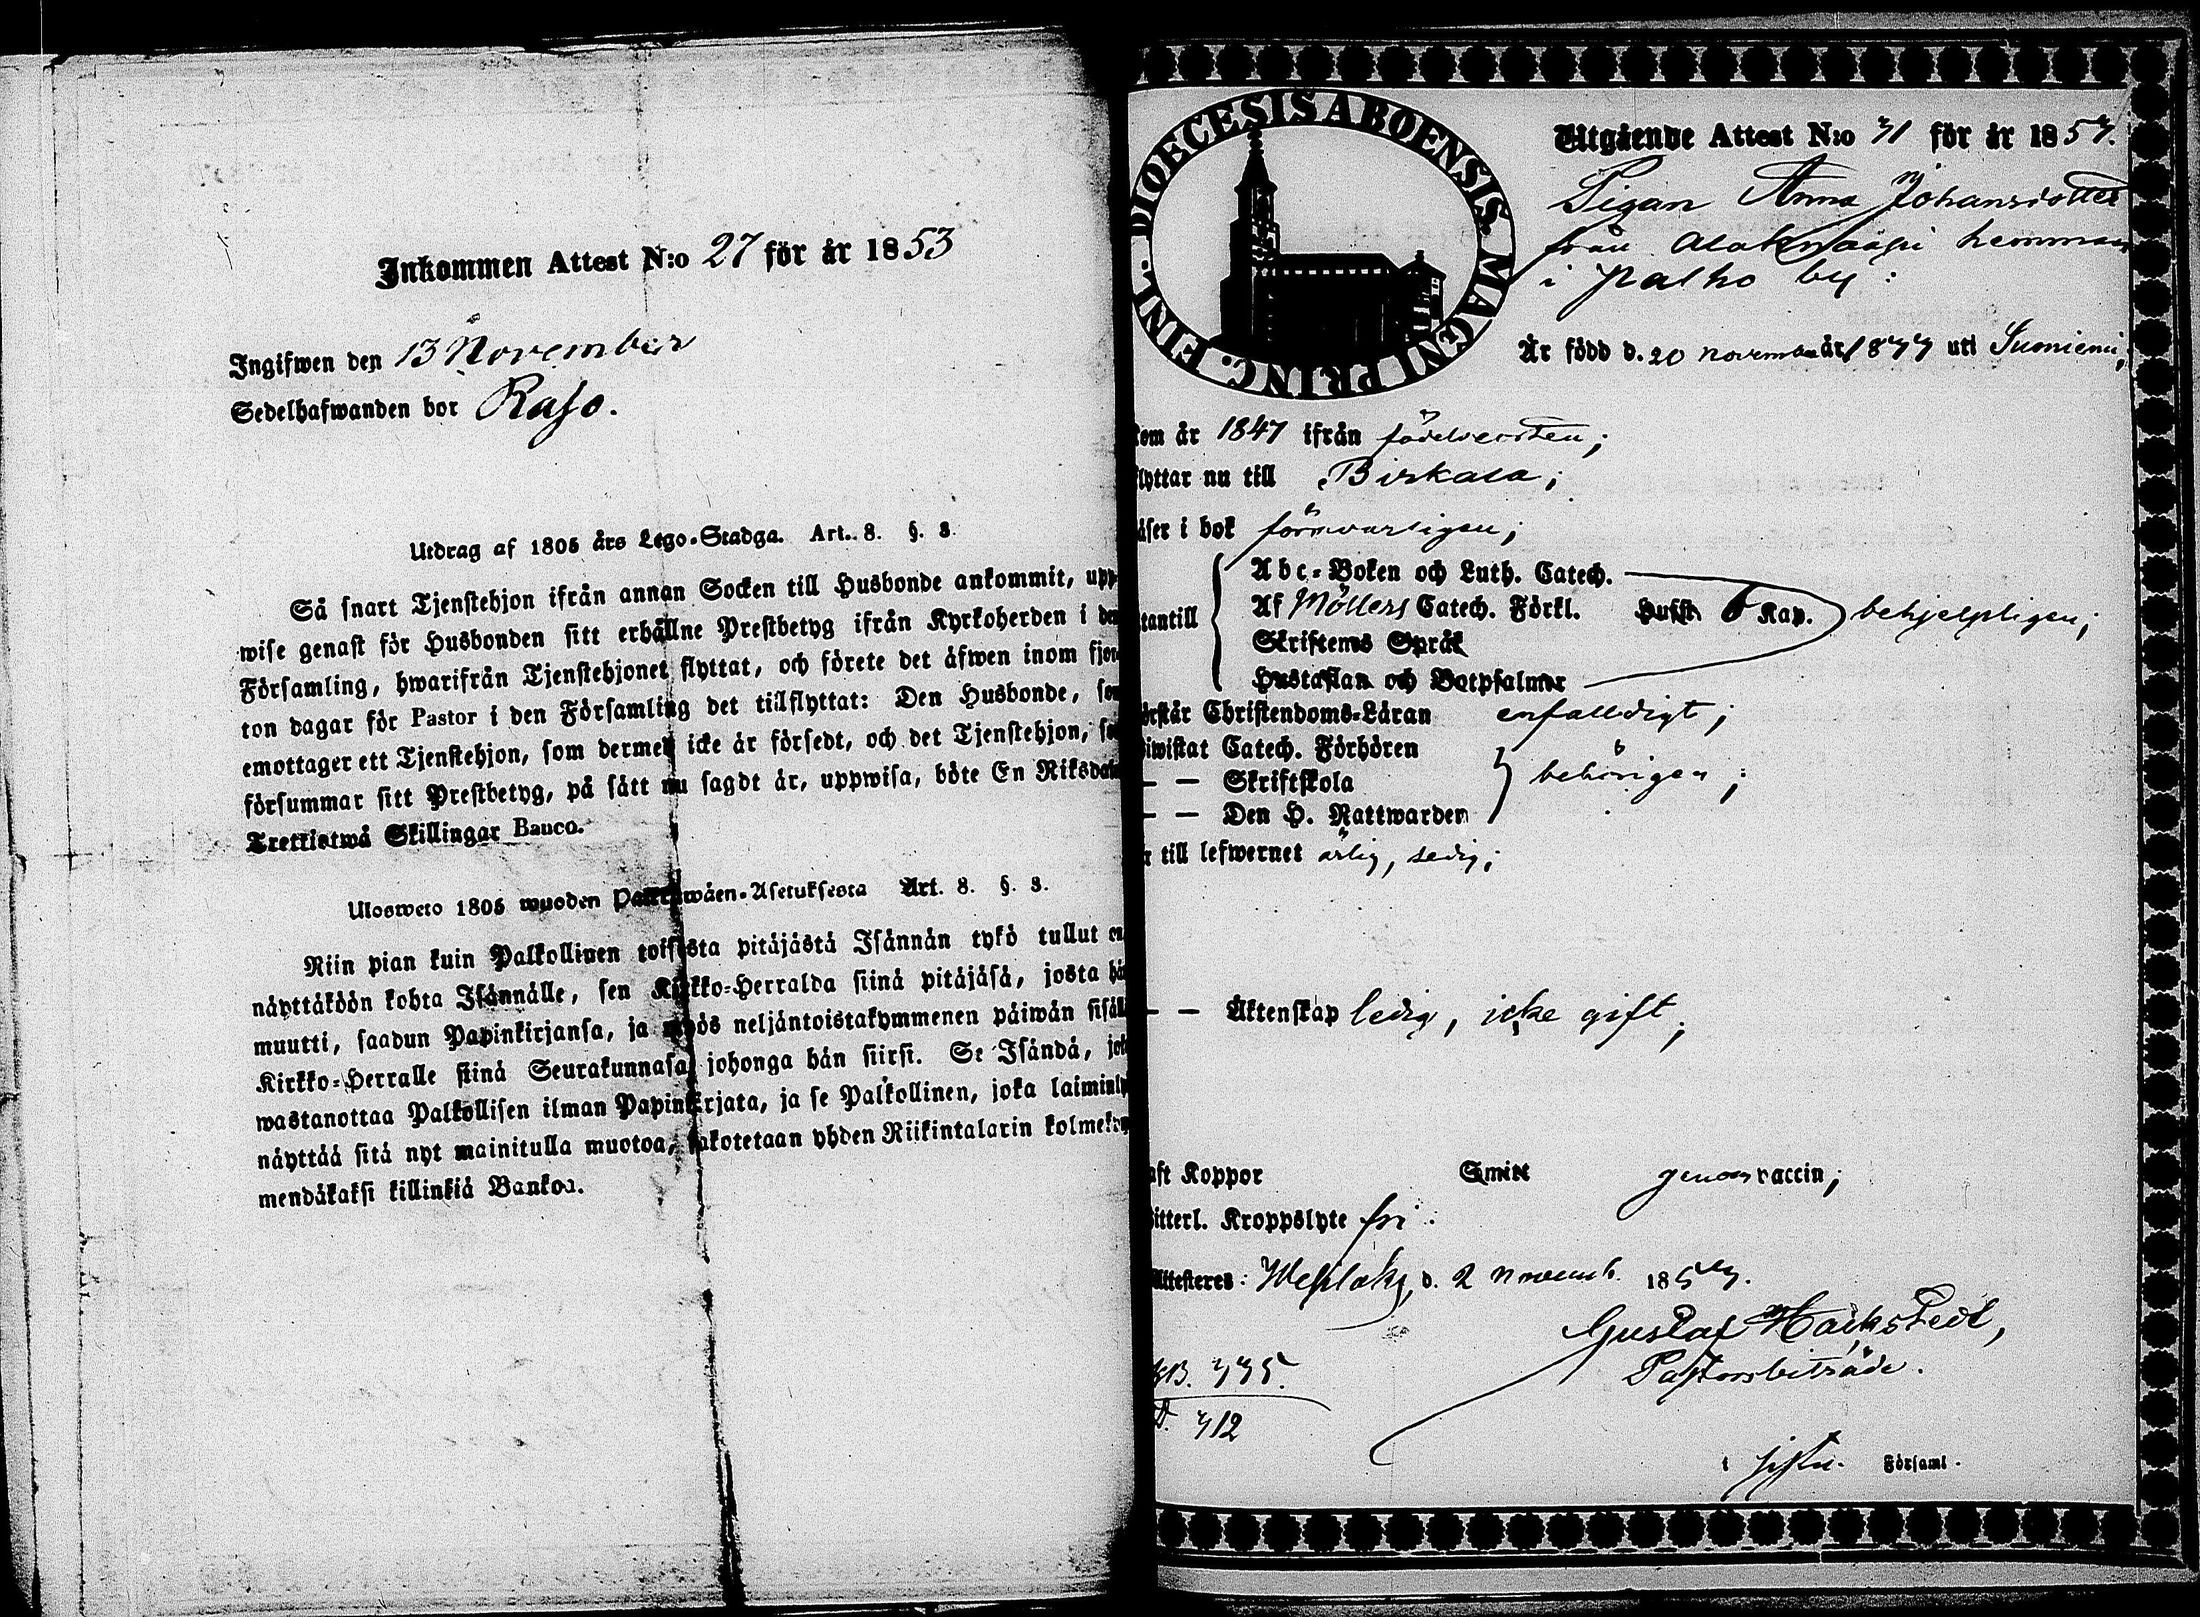 Inkommen Attest N:o 27 för år 1853
Ingifwen den 13 November
Sedelhafwanden bor
Utdrag af 1805 års Lego-Stadga. Art. 8. §. 3.
Så snart Tjenstehjon ifrån annan Socken till Husbonde ankommit, upp-
wise genast för Husbonden sitt erhållne Prestbetyg ifrån Kyrkoherden i den
Församling, hwarifrån Tjenstehjonet flyttat, och förete det äfwen inom fjor-
ton dagar för Pastor i den Församling det tillflyttat: Den Husbonde, som
emottager ett Tjenstehjon, som dermed icke är försedt, och det Tjenstehjon, som
försummar sitt Prestbetyg, på sätt nu sagdt är, uppwisa, böte En Riksdaler
Trettiotwå Skillingar Banco.
Ulosweto 1805 wuoden Palkkawäen-Asetuksesta Art. 8. §. 3.
Niin pian kuin Palkollinen toisesta pitäjästä Isännän tykö tullut on
näyttäköön kohta Isännälle, sen Kirkko-Herralda siinä pitäjäsä, josta hän
muutti, saadun Papinkirjansa, ja myös neljäntoistakymmenen päiwän sisäll
Kirkko-Herralle siinä Seurakunnasa johonga hän siirsi. Se Isändä, joka
wastanottaa Palkollisen ilman Papinkirjata, ja se Palkollinen, joka laiminly
näyttää sitä nyt mainitulla muotoa, sakotetaan yhden Riikintalarin kolmekym-
mendäkaksi killinkiä Bankoa.
DIOECESIS ABOENSIS. MAGNI PRINC. FINL.
Utgående Attest N:o 71 för år 1857.
Pigan Anna Johansdotter
från hemman
i Palho by:
Är född d. 20 november år 1877 uti Suoniemi,
kom år 1847 ifrån födelseorten;
flyttar nu till Birkala;
läser i bok försvarligen;
utantill
Abc-Boken och Luth. Catech.
Af Möllers Catech. Förkl. Hufst. 6 Kap. behjelpligen;
Skriftenes Språk
Hustaflan och Botpsalmer
förstår Christendoms-Läran enfalldigt;
biwistat Catech. Förhören
— — Skriftskola behörigen;
— — Den H. Nattwarden
är till lefwernet ärlig, sedig;
— — Äktenskap ledig, icke gift;
haft Koppor Smitt genom vaccin;
Witterl. Kroppslyte fri.
Attesteres: Wesilaks, d. 2 novemb. 1857.
Gustaf Hackstedt,
Pastorsbiträde.
KB. 775.
D. 712
i Församl.